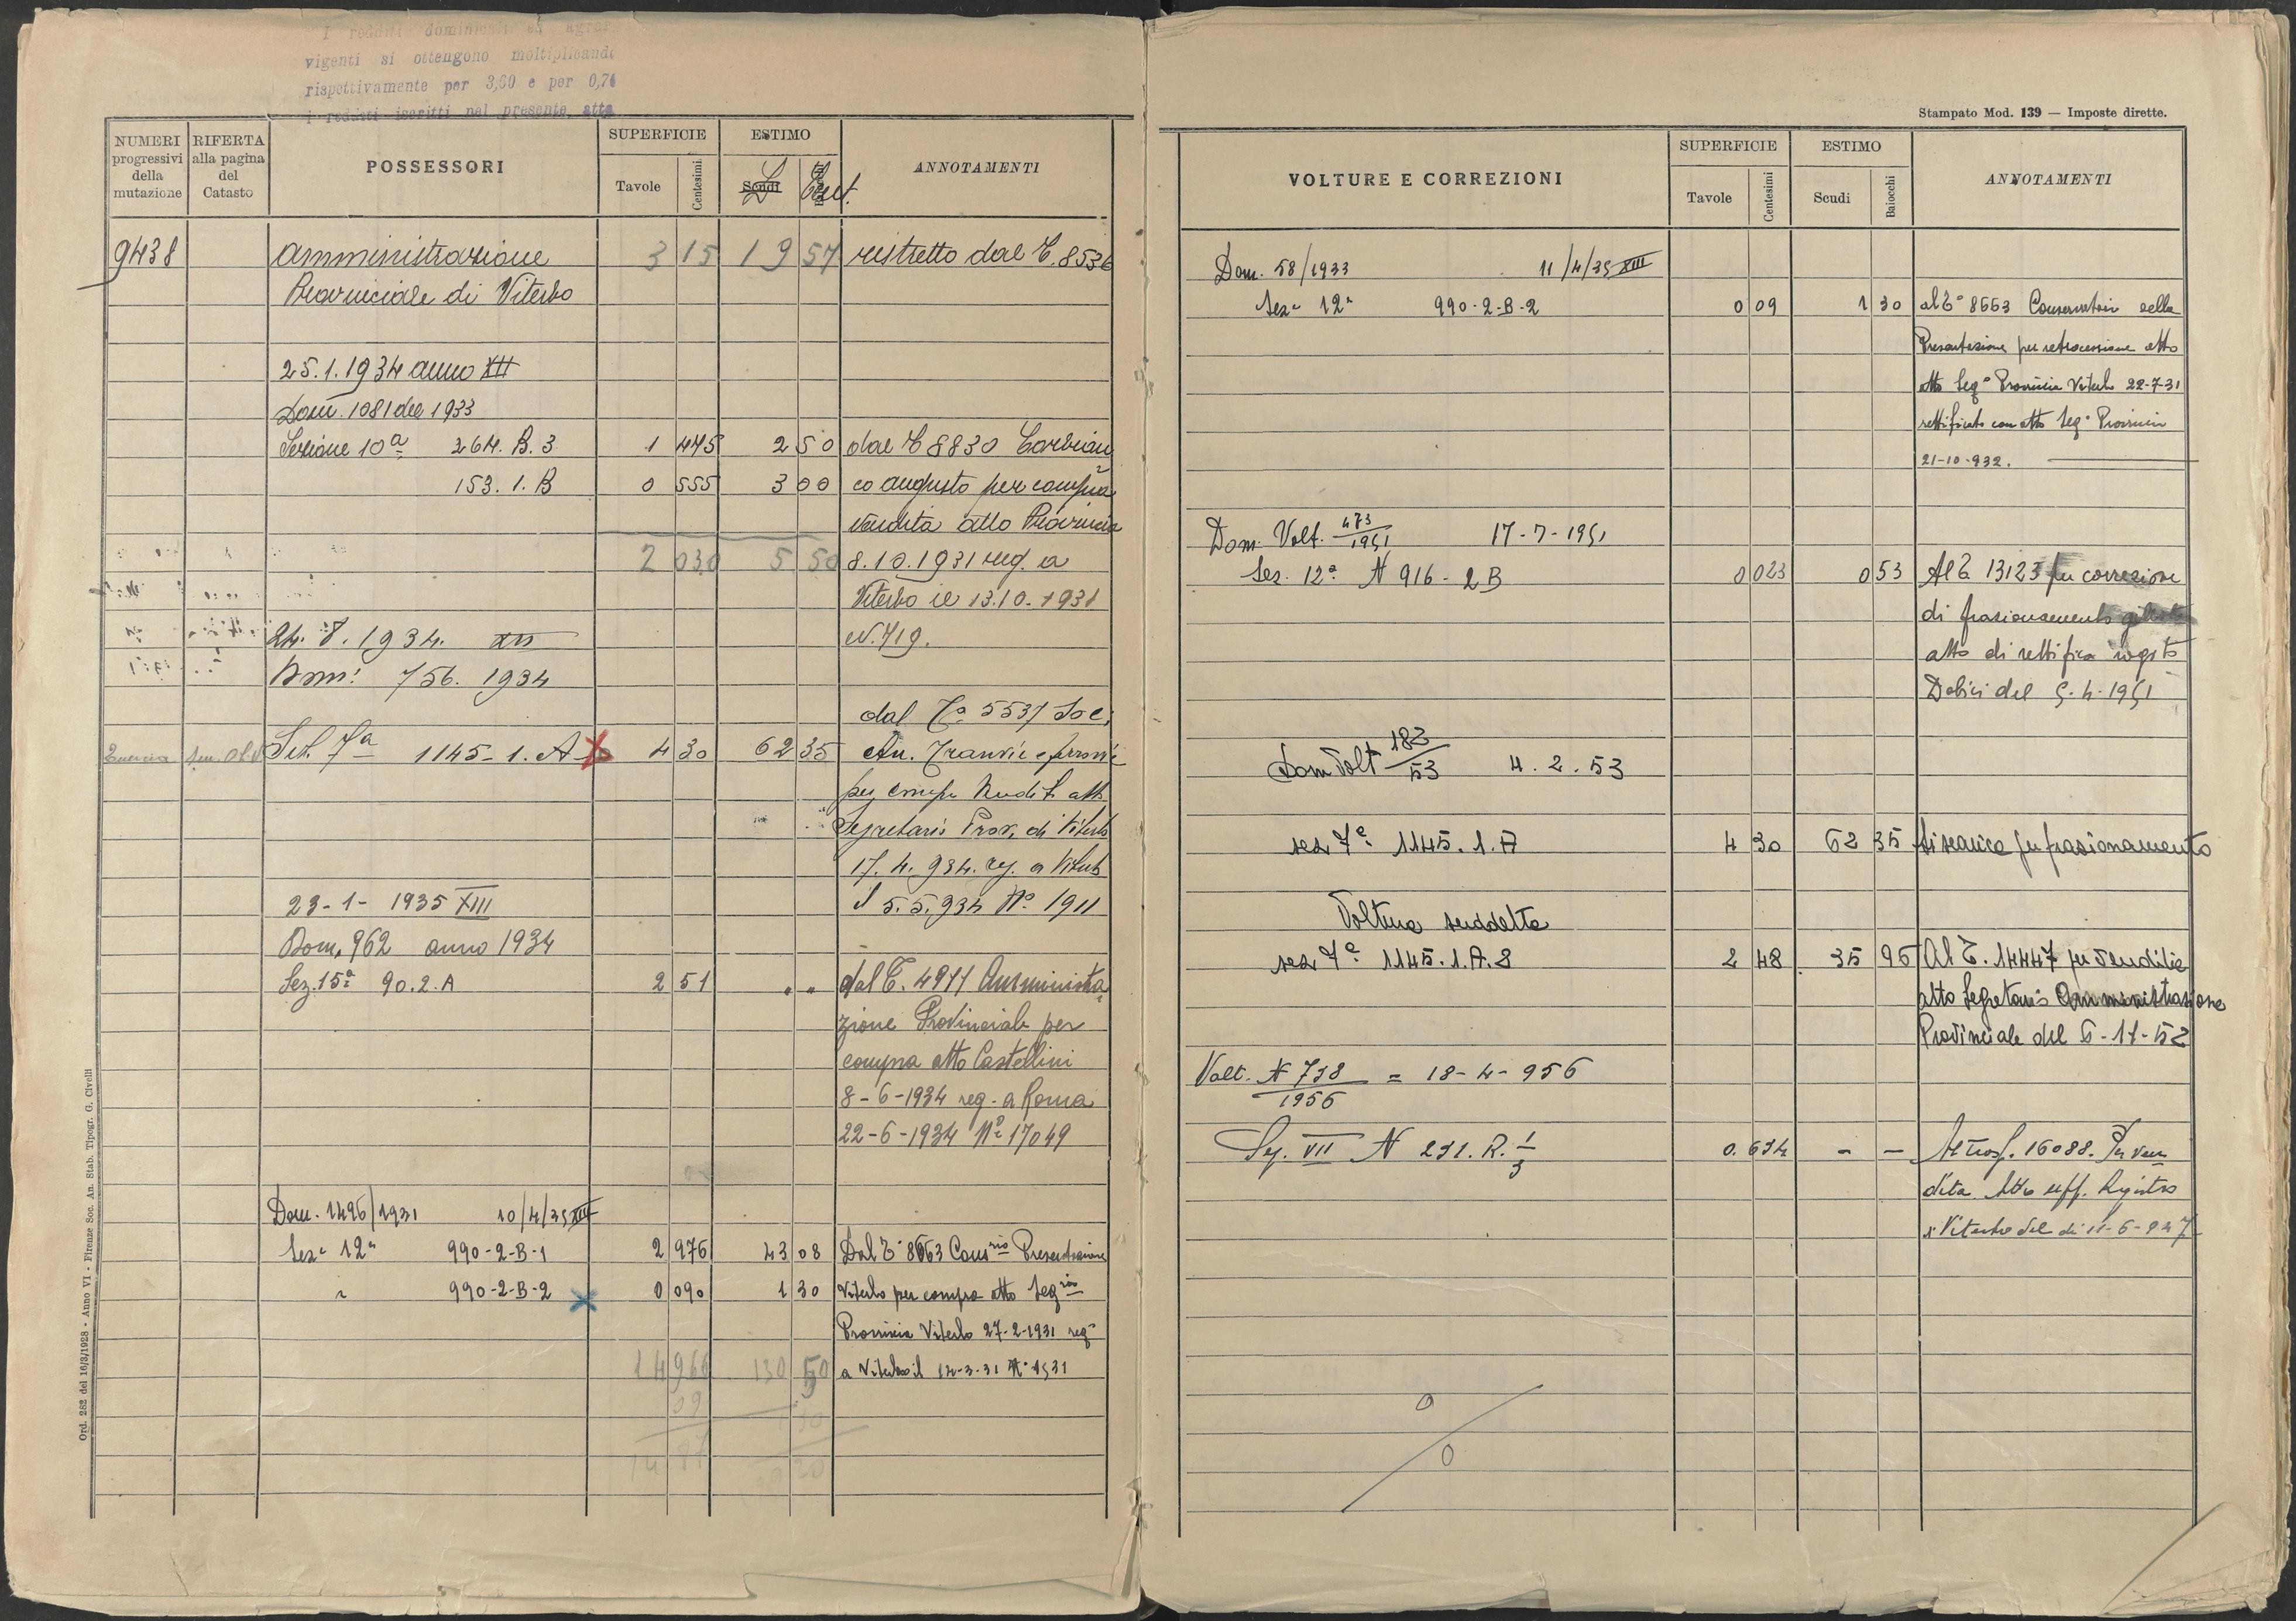 I redditi dominicali ed agrar
vigenti si ottengono moltiplicando
rispettivamente per 3,60 e per 0,7
i redditi iscritti nel presente atto
NUMERI progressivi della mutazione
RIFERTA alla pagina del Catasto
POSSESSORI
SUPERFICIE
Tavole Centesimi
ESTIMO
Scudi
L Cent.
ANNOTAMENTI
9438 Amministrazione 3 15 19 57 ristretto dal T. 8536
Provinciale di Viterbo
25.1.1934 anno XII
Dom. 1081 del 1933
Sezione 10a 264. B. 3 1 475 2 50 dal T 8830
153. 1. B 0 555 3 00 co augusto per compra
vendita atto Provincia
2 030 5 50 8.10.1931 reg. a
Viterbo il 13.10.1931
24. 8. 1934. XII N. 719.
Dom: 756. 1934
dal To 5537 Soc.
Sez. 7a 1145-1. A 4 30 62 35 An. Tranvie e ferrovie
per comp. Vendit. atto
Segretario Prov. di Viterbo
17. 4. 934. reg. a Viterb
23-1- 1935 XIII il 5.5.934 No 1911
Dom. 962 anno 1934
Sez. 15a 90.2.A 2 51 " " dal T. 4977 Amministra
zione Provinciale per
compra atto Castellini
8-6-1934 reg. a Roma
22-6-1934 No 17049
Dom. 1496/1931 10/4/35 XIII
Seza 12a 990-2-B-1 2 976 43 08 Dal To 8663 Consrio Presentazione
" 990-2-B-2 0 090 1 30 Viterbo per compra atto Segrio
Provincia Viterbo 27-2-1931 rego
14 966 130 50 a Viterbo il 14-3-31 No 1531
Ord. 282 del 16/3/1928 - Anno VI - Firenze Soc. An. Stab. Tipogr. G. Civelli
Stampato Mod. 139 — Imposte dirette.
VOLTURE E CORREZIONI
SUPERFICIE
Tavole Centesimi
ESTIMO
Scudi Baiocchi
ANNOTAMENTI
Dom. 58/1933 11/4/35 XIII
Seza 12a 990-2-B-2 0 09 1 30 al To 8663 Conservatori della
Presentazione per retrocessione atto
atto Sego Provincia Viterbo 22-7-31
rettificato con atto Sego Provincia
21-10-932.
Dom. Volt. 473/1951 17-7-1951
Sez. 12a N 916-2B 0 023 0 53 Al T. 13123 per correzione
di frazionamento
atto di rettifica rogito
Dobici del 5-4-1951
Dom Volt 183/53 4.2.53
sez 7a 1145.1.A 4 30 62 35 Si scarica per frazionamento
Voltura suddetta
sez 7a 1145.1.A.2 2 48 35 96 Al T. 14447 per vendita
atto Segretario Amministrazione
Provinciale del 6-11-52
Volt. N 738/1956 = 18-4-956
Sez. VII N 231. R. 1/3 0.634 - - Al Trasf. 16088. Per ven
dita Atto uff. Registro
di Viterbo del dì 11-6-947
0/0